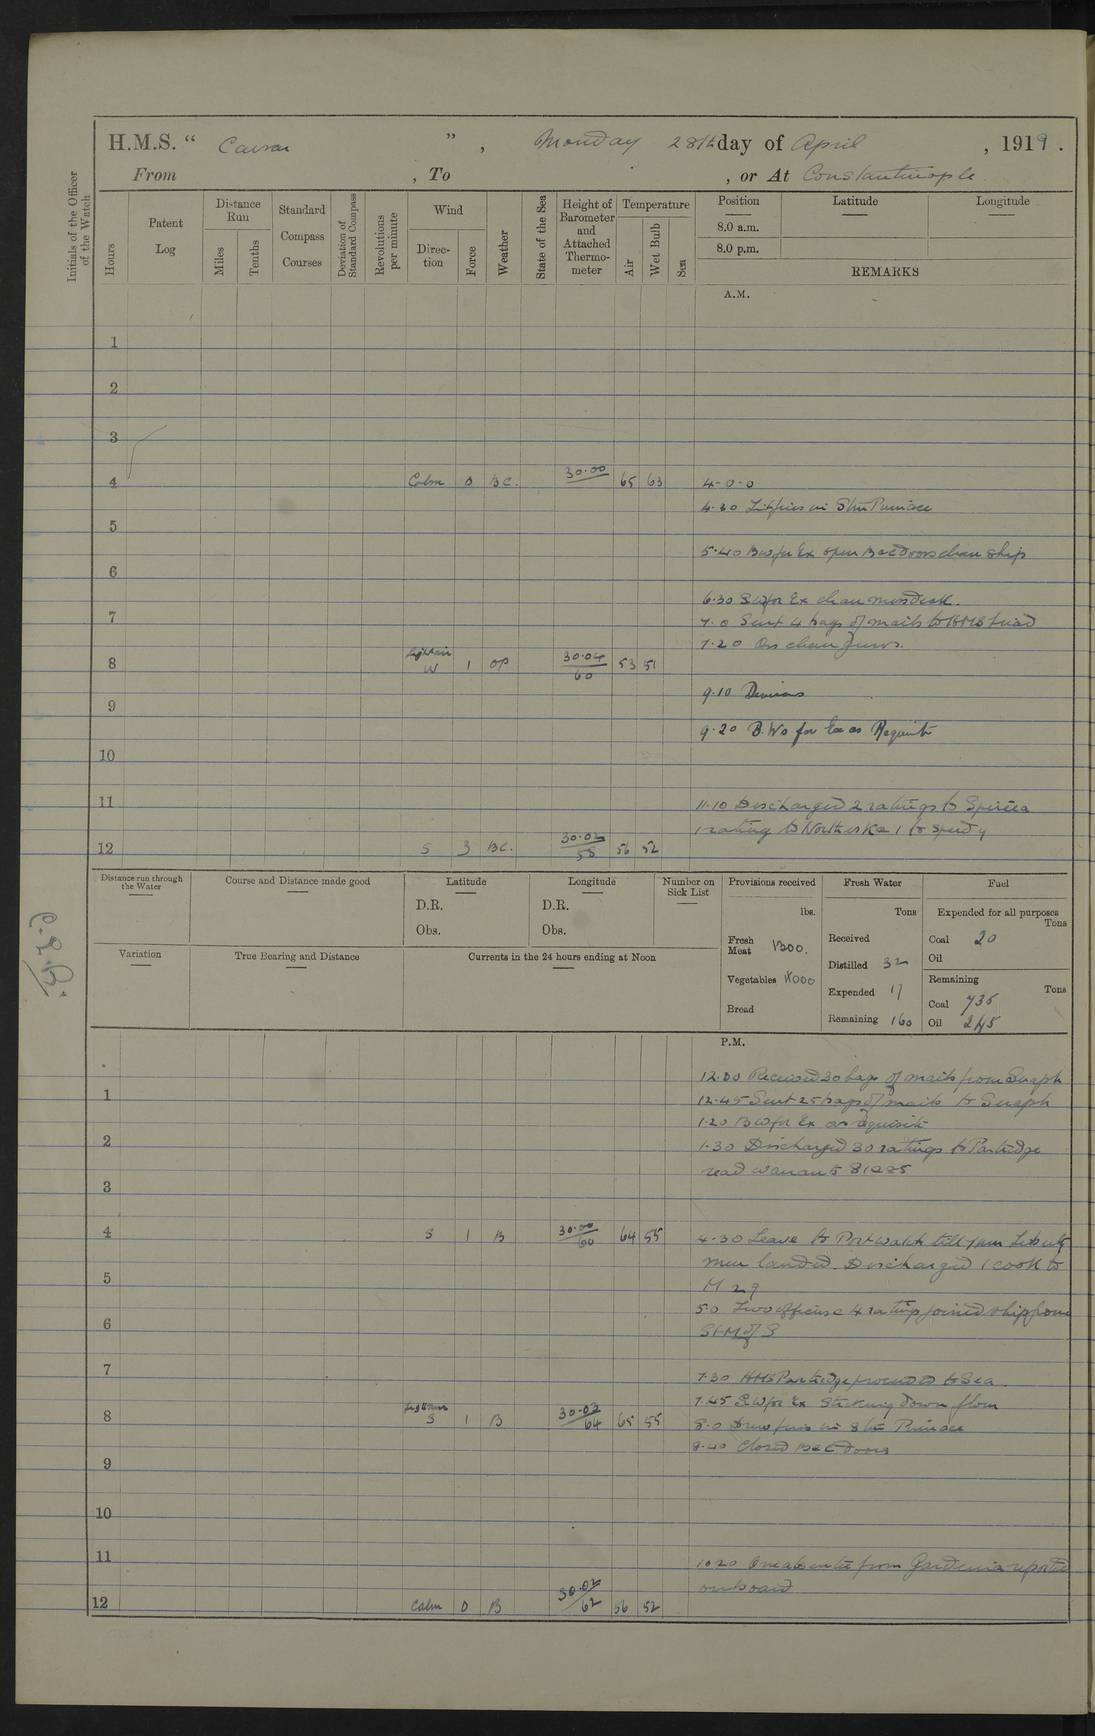 H.M.S. " Caesar ", Monday 28th day of April, 1919.
From , To , or At Constantinople
Initials of the Officer of the Watch
Hours
Patent Log
Distance Run
Miles
Tenths
Standard Compass Courses
Deviation of Standard Compass
Revolutions per minute
Wind
Direction
Force
Weather
State of the Sea
Height of Barometer and Attached Thermometer
Temperature
Air
Wet Bulb
Sea
Position Latitude Longitude
8.0 a.m.
8.0 p.m.
REMARKS
A.M.
1
2
3
4 Calm 0 BC. 30.00 65 63 4-0-0
4.30 Lit fires in Stm Pinnace
5
5.40 BW for Ex open B & C doors clean ship
6
6.30 BW for Ex clean mess deck.
7 7.0 Sent 4 bags of mails to HMS Triad
7.20 Qrs clean guns.
8 Light air W 1 OP 30.04 60 53 51
9.10 Divisions
9
9.20 B.Ws for Ex as Requisite
10
11 11.10 Discharged 2 ratings to Spiraea
1 rating to Northesk & 1 to Speedy
12 S 3 BC. 30.02 58 56 52
Distance run through the Water
Course and Distance made good
Latitude
D.R.
Obs.
Longitude
D.R.
Obs.
Number on Sick List
Provisions received
lbs.
Fresh Meat 1200.
Vegetables 1000
Bread
Fresh Water
Tons
Received
Distilled 32
Expended 17
Remaining 160
Fuel
Expended for all purposes
Tons
Coal 20
Oil
Remaining
Tons
Coal 735
Oil 245
Variation
True Bearing and Distance
Currents in the 24 hours ending at Noon
P.M.
12.00 Received 30 bags of mails from Seraph
1 12.45 Sent 25 bags of mails to Seraph
1.20 BW for Ex as requisite
2 1.30 Discharged 30 ratings to Partridge
read warrants 81 & 85
3
4 S 1 B 30.00 60 64 55 4.30 Leave to Port watch till 7am Liberty
men landed. Discharged 1 cook to
5 M 29
5.0 Two officers & 4 ratings joined ship from
6 St M of S
7 7.30 HMS Partridge proceeded to Sea.
7.45 BW for Ex
8 Light air S 1 B 30.03 64 65 55 8.0 Drew fires in Stm Pinnace
8.40 Closed B & C doors
9
10
11 10.20 One absentee from Gardenia reported
onboard
12 Calm 0 B 30.02 62 56 52